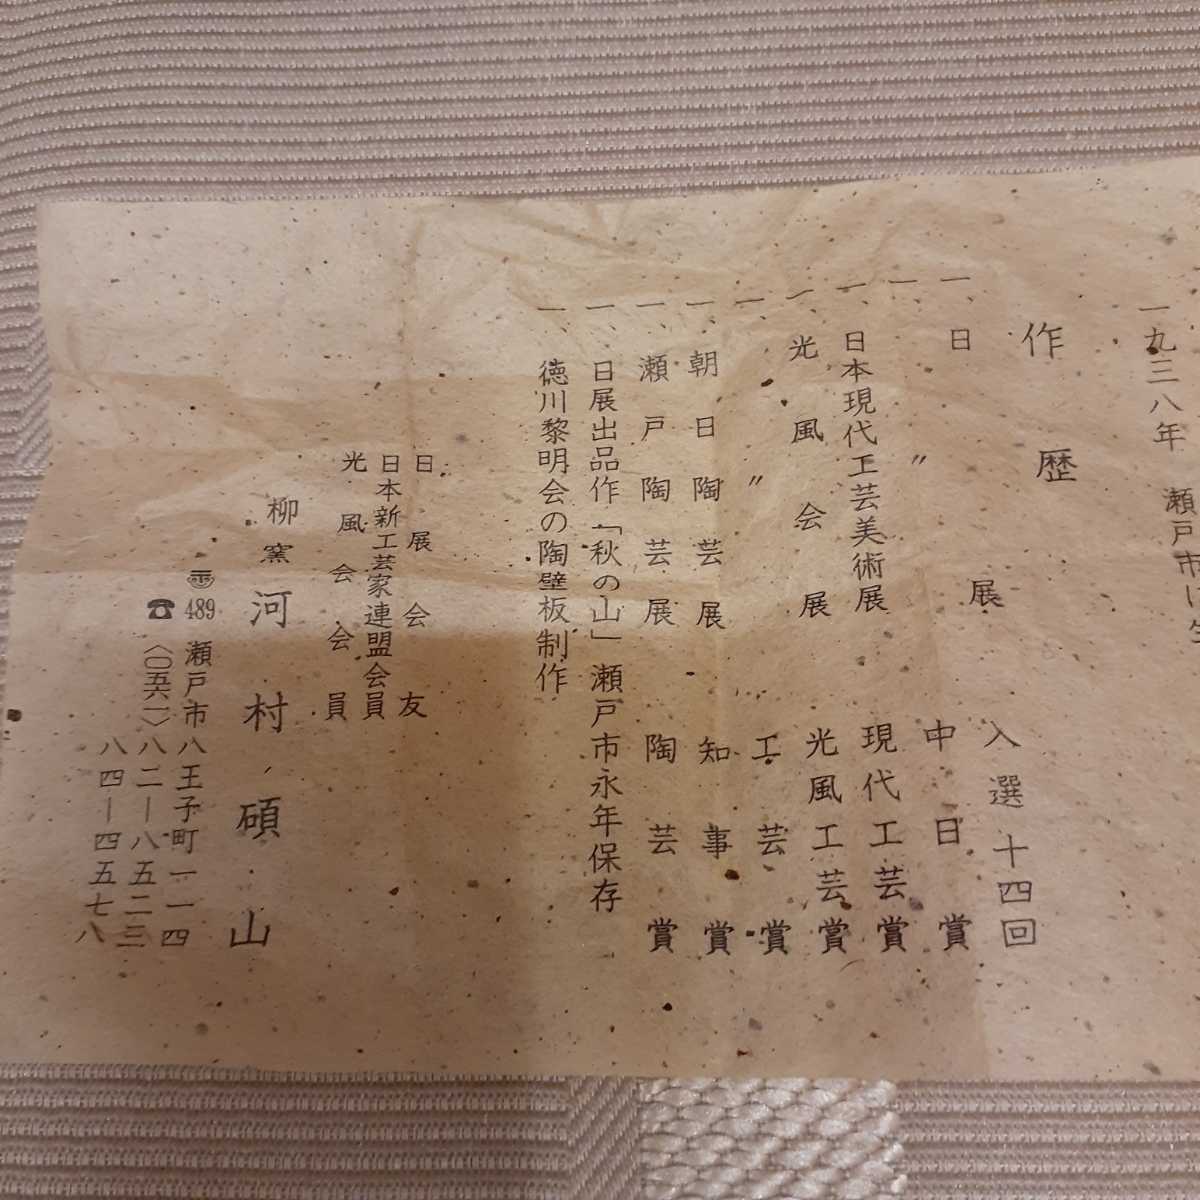 一九三八年 瀬戸市に生
作歴
一、日展 入選十四回
一、〃 中日賞
一、日本現代工芸美術展 現代工芸賞
一、光風会展 光風工芸賞
一、〃 工芸賞
一、朝日陶芸展 知事賞
一、瀬戸陶芸展 陶芸賞
一、日展出品作「秋の山」瀬戸市永年保存
一、徳川黎明会の陶壁板制作
日展会友
日本新工芸家連盟会員
光風会会員
柳窯 河村碩山
〠489 瀬戸市八王子町一一四
☎〈〇五六一〉八二―八五二三
八四―四五七八